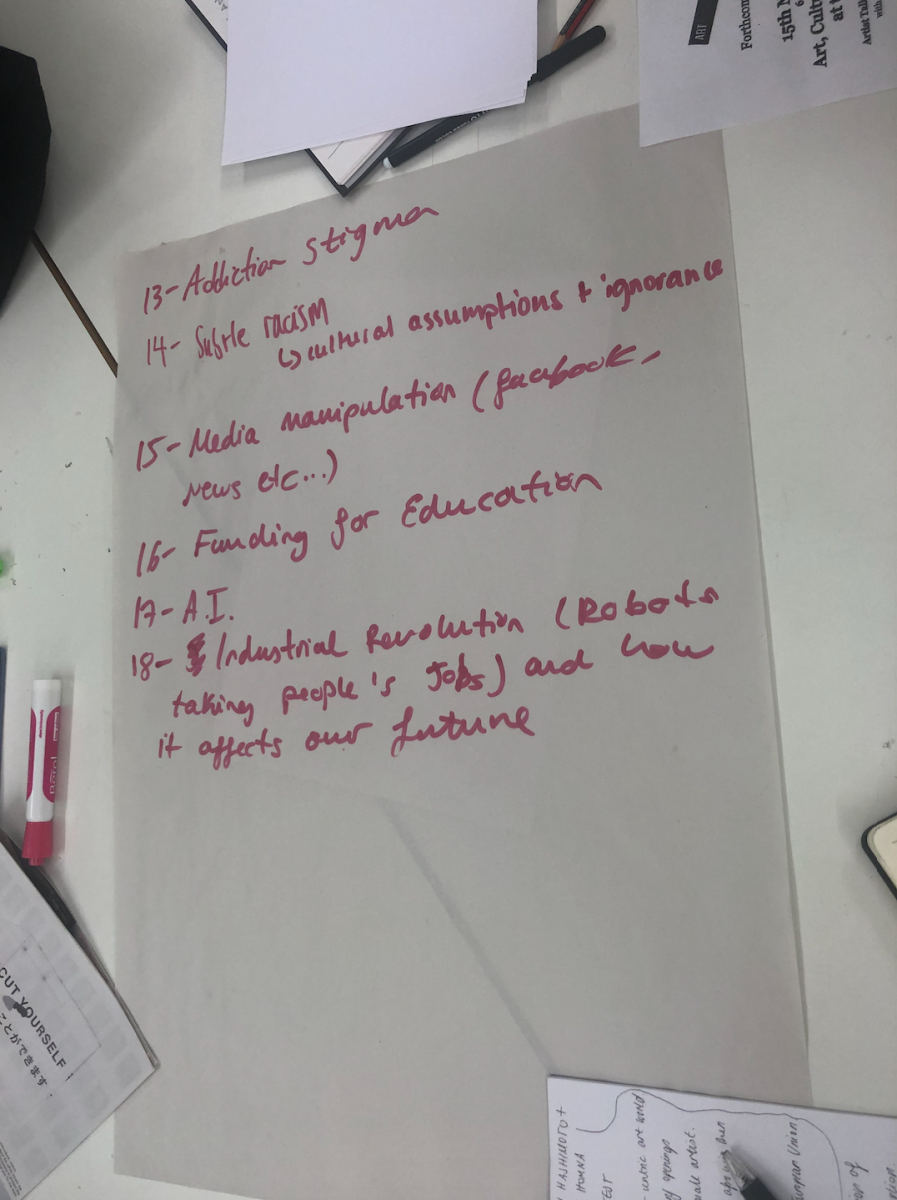 ART
Forthcom
15th
Art, Cult
at
Artist Tal
with
13- Addiction stigma
14- Subtle racism
↳ cultural assumptions + ignorance
15- Media manipulation (facebook,
News etc...)
16- Funding for Education
17- A.I.
18- Industrial Revolution (Robots
taking people's Jobs) and how
it affects our future
Berol
CUT YOURSELF
ことができます
HASHIMOTO +
HOMNA
EST
art world
openings
artist.
Union
of